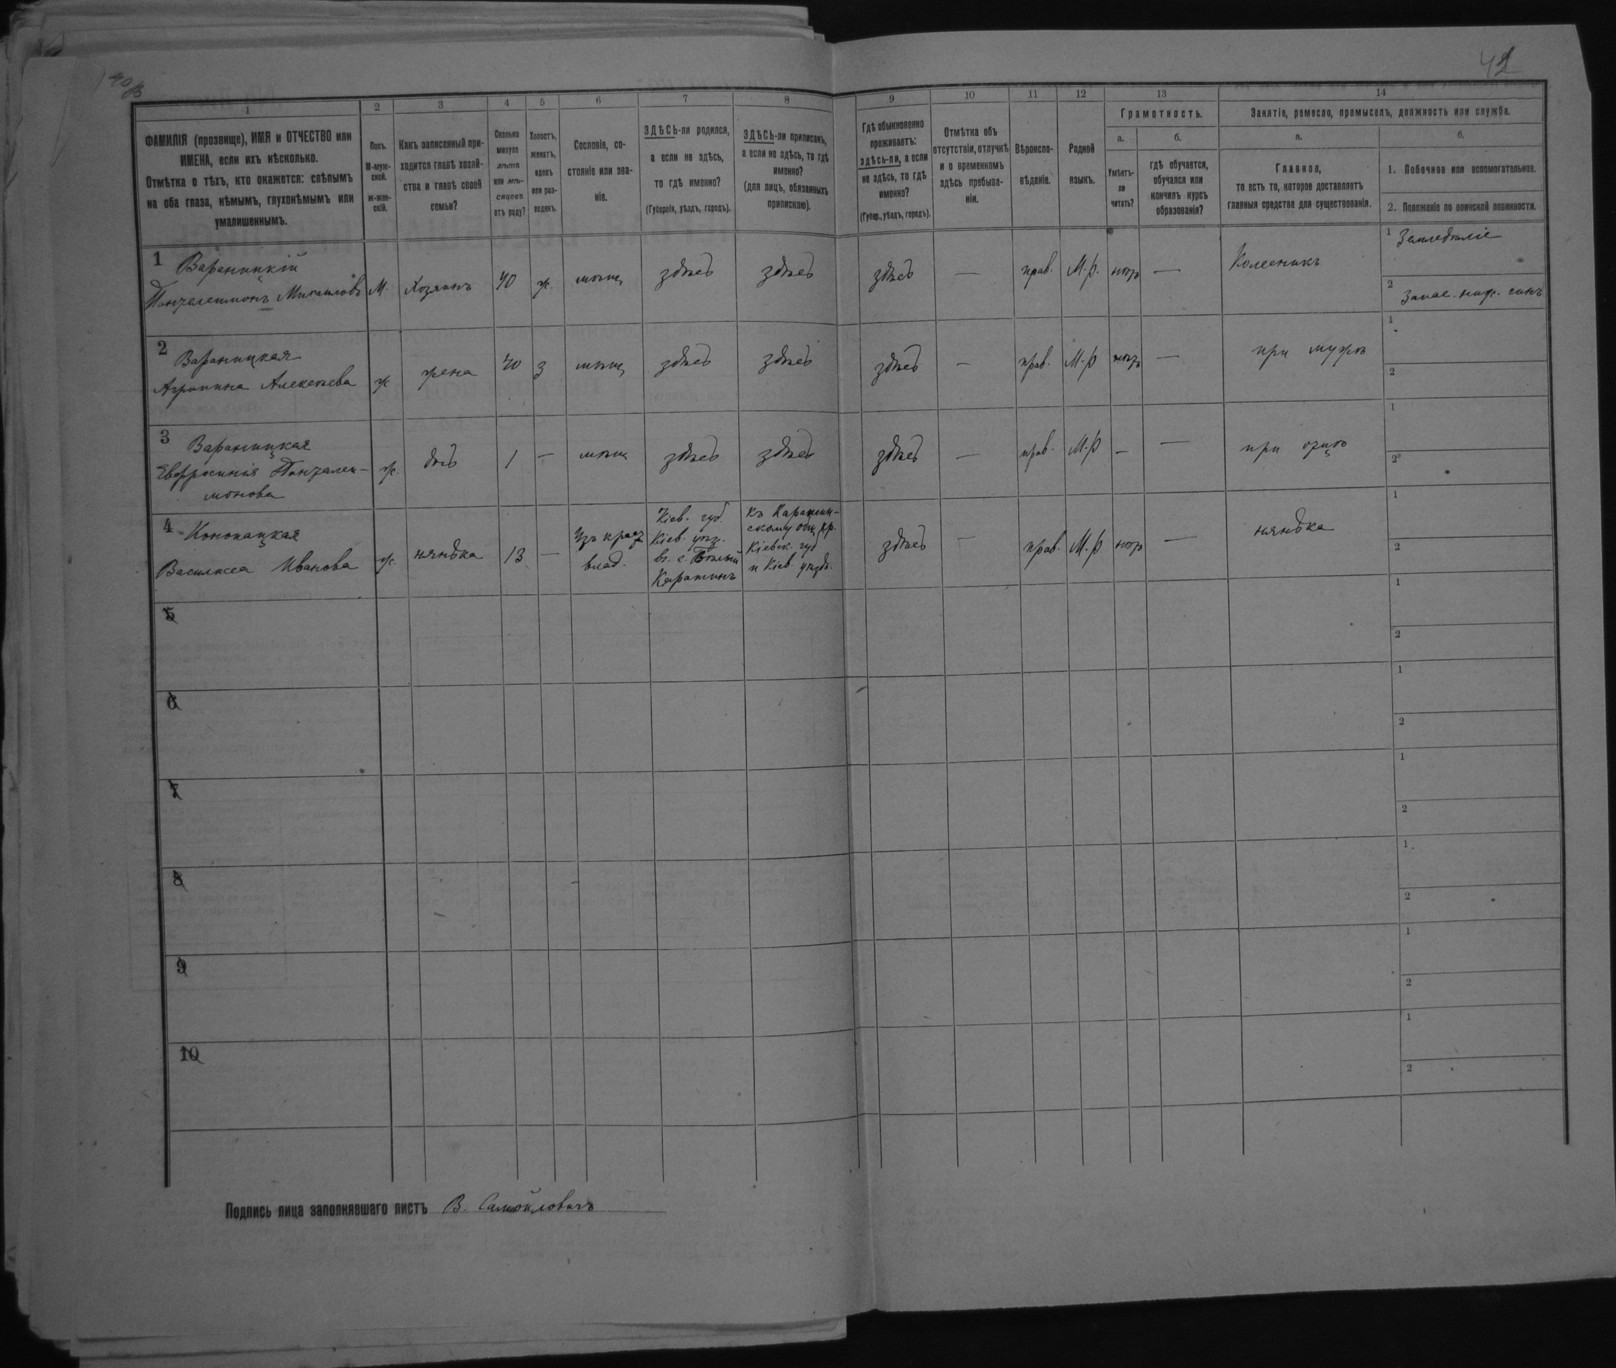 42
1 2 3 4 5 6 7 8 9 10 11 12 13 14
ФАМИЛІЯ (прозвище), ИМЯ и ОТЧЕСТВО или
ИМЕНА, если ихъ нѣсколько.
Отмѣтка о тѣхъ, кто окажется: слѣпымъ
на оба глаза, нѣмымъ, глухонѣмымъ или
умалишеннымъ.
Полъ.
М-муж-
ской.
ж-жен-
скій.
Какъ записанный при-
ходится главѣ хозяй-
ства и главѣ своей
семьи?
Сколько
минуло
лѣтъ
или мѣ-
сяцевъ
отъ роду?
Холостъ,
женатъ,
вдовъ
или раз-
веденъ.
Сословіе, со-
стояніе или зва-
ніе.
ЗДѢСЬ-ли родился,
а если не здѣсь,
то гдѣ именно?
(Губернія, уѣздъ, городъ).
ЗДѢСЬ-ли приписанъ,
а если не здѣсь, то гдѣ
именно?
(для лицъ, обязанныхъ
припискою).
Гдѣ обыкновенно
проживаетъ:
здѣсь-ли, а если
не здѣсь, то гдѣ
именно?
(Губер., уѣздъ, городъ).
Отмѣтка объ
отсутствіи, отлучкѣ
и о временномъ
здѣсь пребыва-
ніи.
Вѣроиспо-
вѣданіе.
Родной
языкъ.
Грамотность.
а.
Умѣетъ-
ли
читать?
б.
гдѣ обучается,
обучался или
кончилъ курсъ
образованія?
Занятіе, ремесло, промыселъ, должность или служба.
а.
Главное,
то есть то, которое доставляетъ
главныя средства для существованія.
б.
1. Побочное или вспомогательное.
2. Положеніе по воинской повинности.
1 Вараницкій
Пантелеимонъ Михаиловъ М. Хозяинъ 40 ж. мѣщ. здѣсь здѣсь здѣсь — прав. М.р. нѣтъ — Колесникъ
1 Земледѣліе
2 Запас. ниж. чинъ
2 Вараницкая
Агрипина Алексѣева ж жена 40 з мѣщ. здѣсь здѣсь здѣсь — прав. М.р нѣтъ — при мужѣ
1
2
3 Вараницкая
Евфросинія Пантелеи-
монова
ж. дочь 1 — мѣщ здѣсь здѣсь здѣсь — прав. М.р — — при отцѣ
1
2
4 Конопацкая
Василиса Иванова ж. нянька 13 —
влад.
Кіев. губ.
Кіев. уѣз.
Кіевск. губ
и Кіев. уѣзд.
здѣсь — прав. М.р нѣтъ — нянька
1
2
5
1
2
6
1
2
7
1
2
8
1
2
9
1
2
10
1
2
Подпись лица заполнявшаго листъ В. Самойловичъ